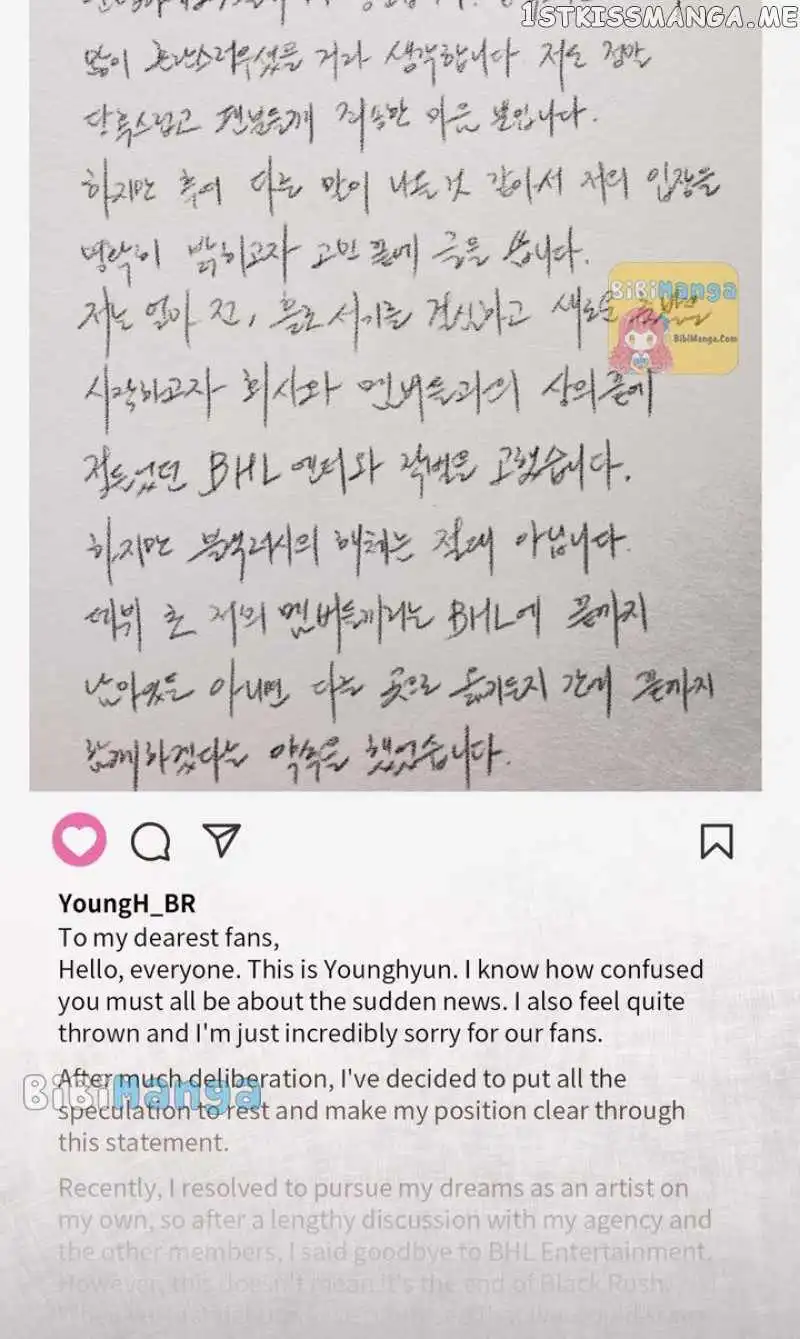 1STKISSMANGA.ME
많이 혼란스러우셨을 거라 생각합니다 저도 정말
당혹스럽고 팬분들께 죄송한 마음 뿐입니다.
하지만 추후 다른 말이 나올 것 같아서 저의 입장을
명확히 밝히고자 고민 끝에 글을 씁니다.
BiBiManga
저는 얼마 전, 홀로서기를 결심하고 새로운
BibiManga.Com
시작하고자 회사와 멤버들과의 상의끝에
정들었던 BHL 엔터와 작별을 고했습니다.
하지만 블랙러시의 해체는 절대 아닙니다.
데뷔 초 저의 멤버들끼리는 BHL에 끝까지
남아있든 아니면 다른 곳으로 옮기든지 간에 끝까지
함께하겠다는 약속을 했었습니다.
YoungH_BR
To my dearest fans,
Hello, everyone. This is Younghyun. I know how confused
you must all be about the sudden news. I also feel quite
thrown and I'm just incredibly sorry for our fans.
After much deliberation, I've decided to put all the
BiBiManga
speculation to rest and make my position clear through
this statement.
Recently, I resolved to pursue my dreams as an artist on
my own, so after a lengthy discussion with my agency and
the other members, I said goodbye to BHL Entertainment.
However, this doesn't mean it's the end of Black Rush.